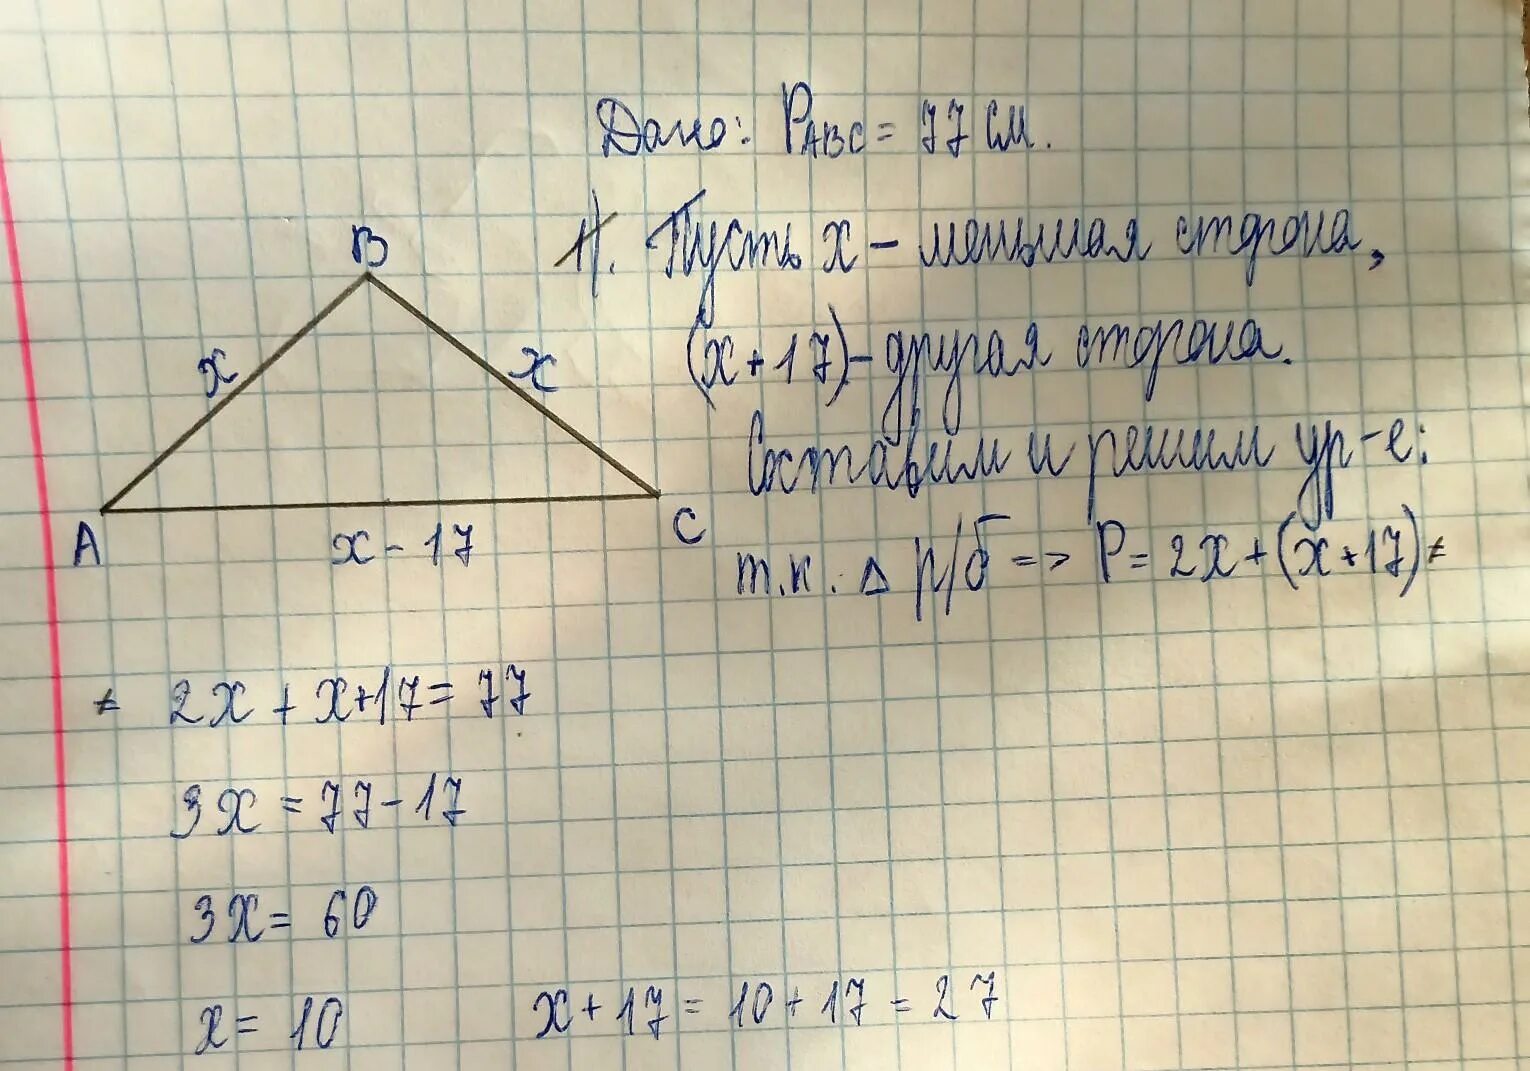 Дано: PABC = 77 см.
1). Пусть x – меньшая сторона,
(x + 17) – другая сторона.
Составим и решим ур-е:
т.к. Δ р/б => P = 2x + (x + 17) =
B
x
x
A
C
x - 17
= 2x + x + 17 = 77
3x = 77 - 17
3x = 60
x = 10
x + 17 = 10 + 17 = 27